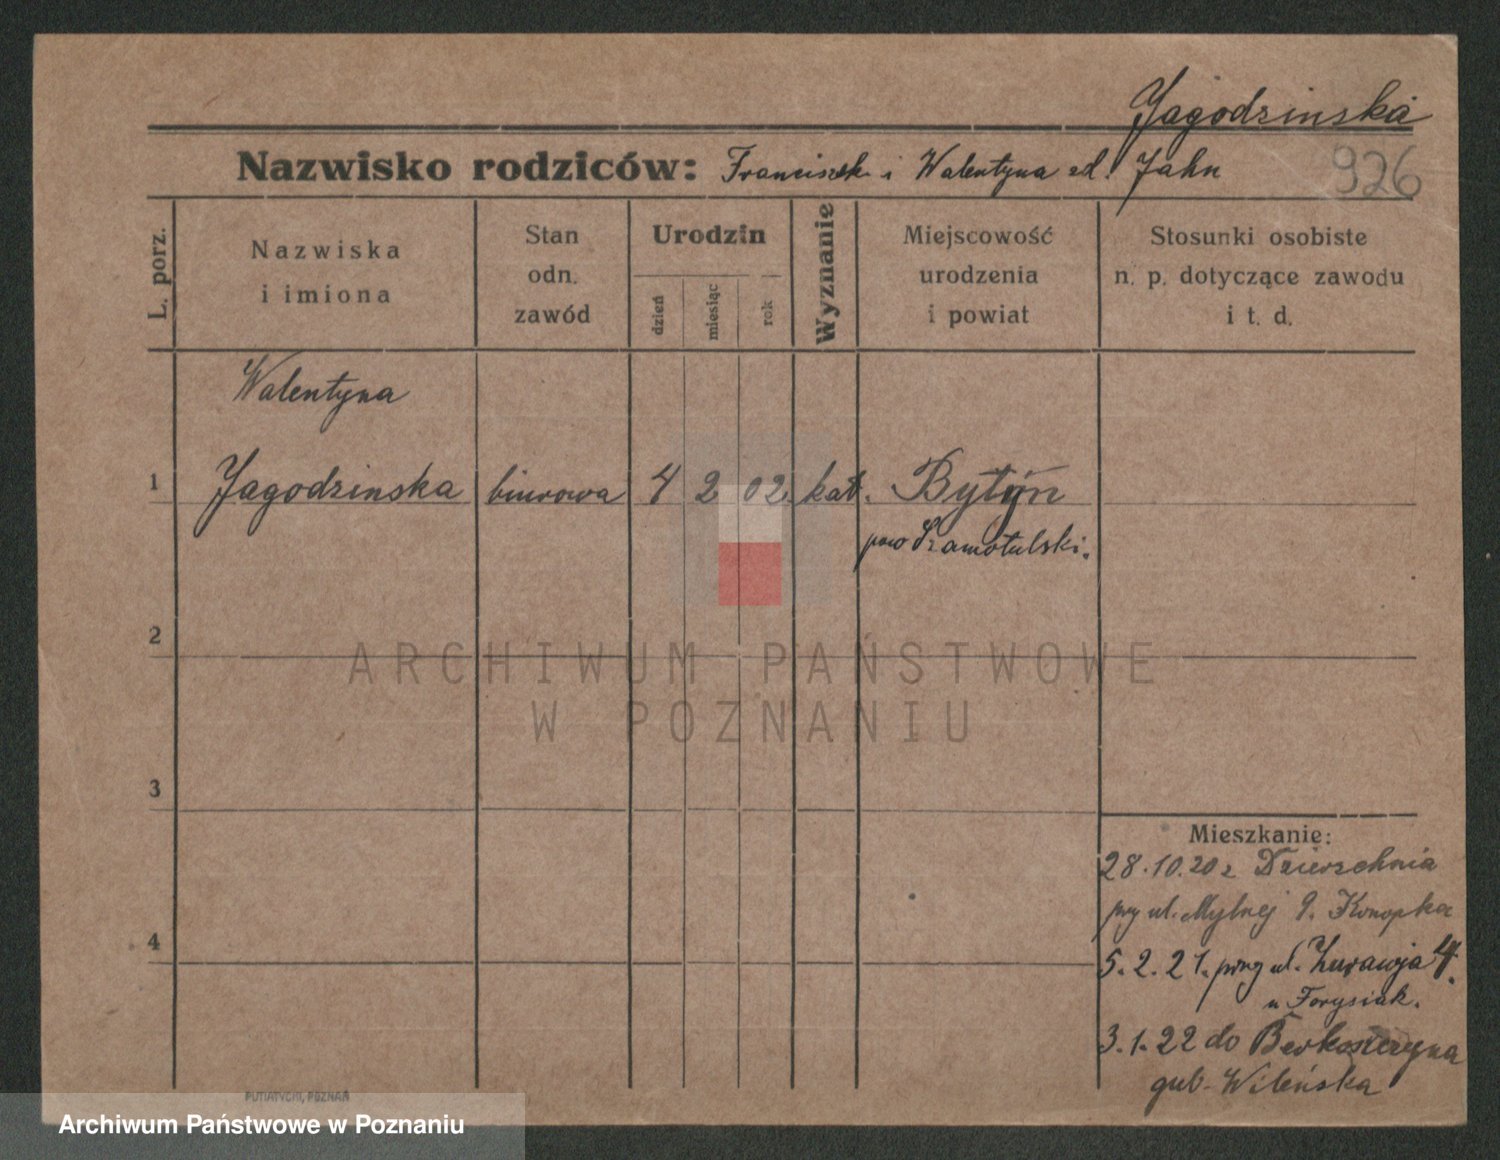 Jagodzinska
Nazwisko rodziców: Franciszek i Walentyna zd. Jahn 926
L. porz.
Nazwiska
i imiona
Stan
odn.
zawód
Urodzin
dzień
miesiąc
rok
Wyznanie
Miejscowość
urodzenia
i powiat
Stosunki osobiste
n. p. dotyczące zawodu
i t. d.
Walentyna
1 Jagodzinska biurowa 4 2 02. kat. Bytyń
pow Szamotulski.
2
3
4
Mieszkanie:
28.10.20 z Dzierzchnia
przy ul. Mylnej 9. Konopka
5.2.21. przy ul. Żurawja 4.
u Forysiak.
3.1.22 do
gub. Wileńska
PUTIATYCKI, POZNAŃ
ARCHIWUM PAŃSTWOWE
W POZNANIU
Archiwum Państwowe w Poznaniu